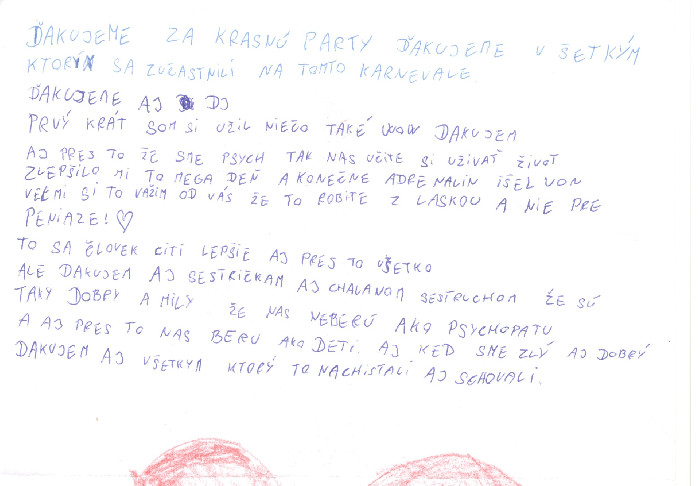 ĎAKUJEME ZA KRASNÚ PARTY ĎAKUJEME VŠETKÝM
KTORÝM SA ZÚČASTNILI NA TOMTO KARNEVALE.
ĎAKUJEME AJ DJ
PRVÝ KRÁT SOM SI UŽIL NIEČO TAKÉ WOW DAKUJEM
AJ PRES TO ŽE SME PSYCH TAK NAS UČITE SI UŽIVAŤ ŽIVOT
ZLEPŠILO MI TO MEGA DEŇ A KONEČNE ADRENALIN IŠEL VON
VEĽMI SI TO VAŽIM OD VÁS ŽE TO ROBITE Z LASKOU A NIE PRE
PENIAZE! ♡
TO SA ČLOVEK CITI LEPŠIE AJ PRES TO VŠETKO
ALE DAKUJEM AJ SESTRIČKAM AJ CHALANOM SESTRUCHOM ŽE SÚ
TAKY DOBRY A MILY ŽE NAS NEBERÚ AKO PSYCHOPATU
A AJ PRES TO NAS BERU AKO DETI. AJ KED SME ZLÝ AJ DOBRÝ
DAKUJEM AJ VŠETKYM KTORÝ TO NACHISTALI AJ SCHOVALI.